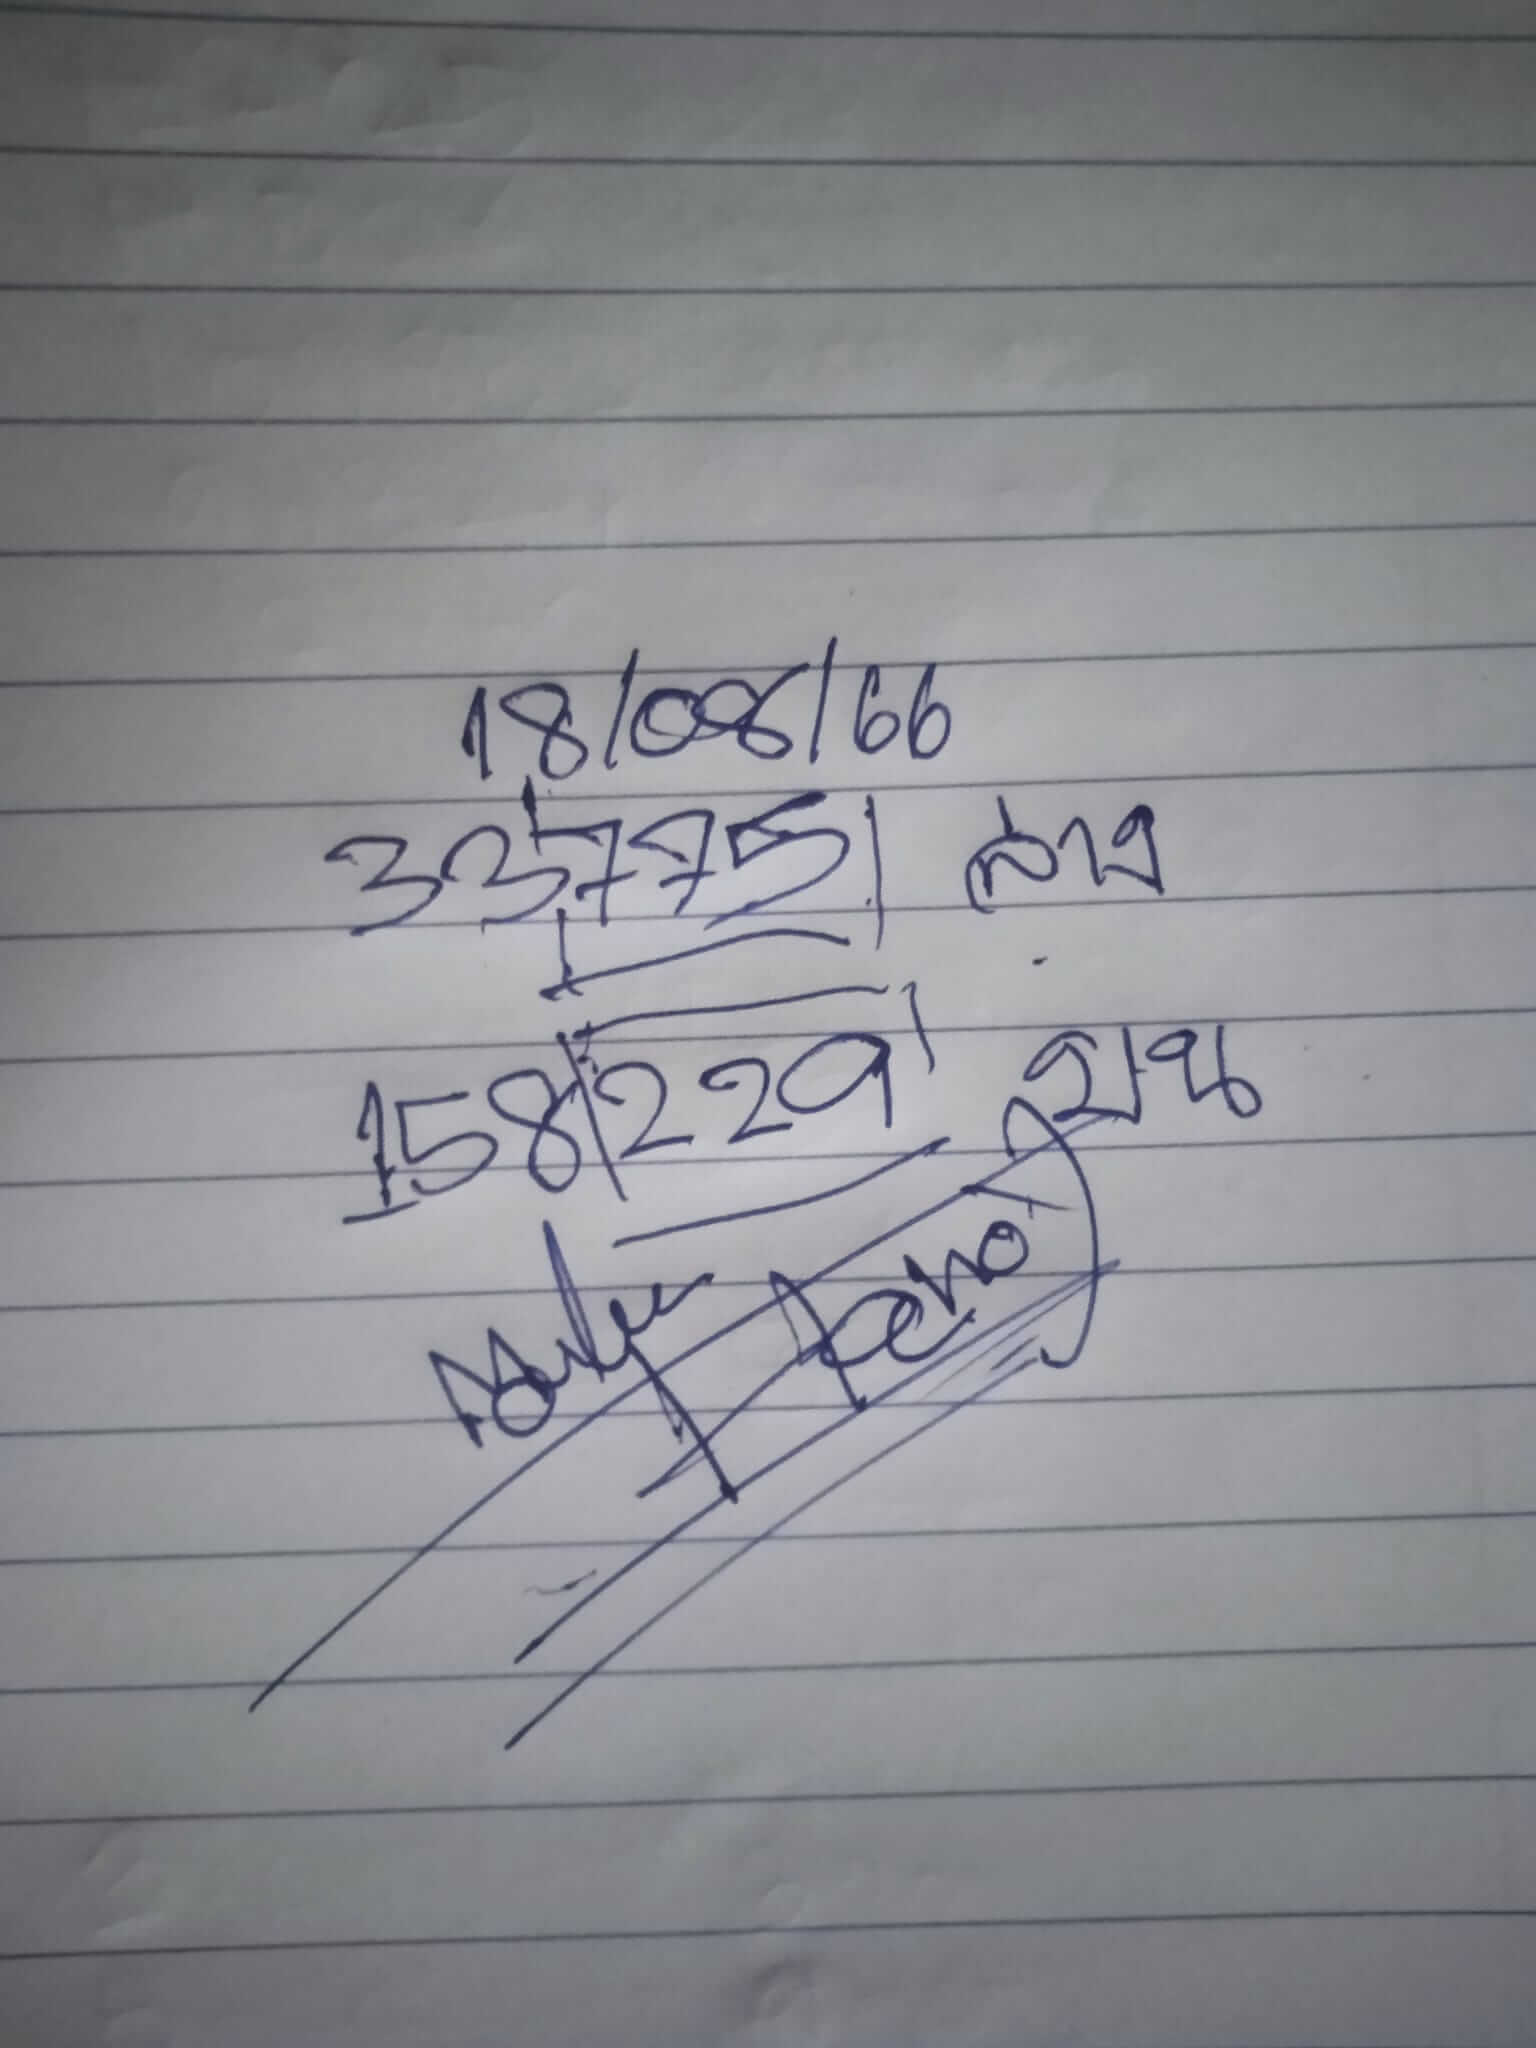 18/08/66
33775 ล่าง
158229 บน